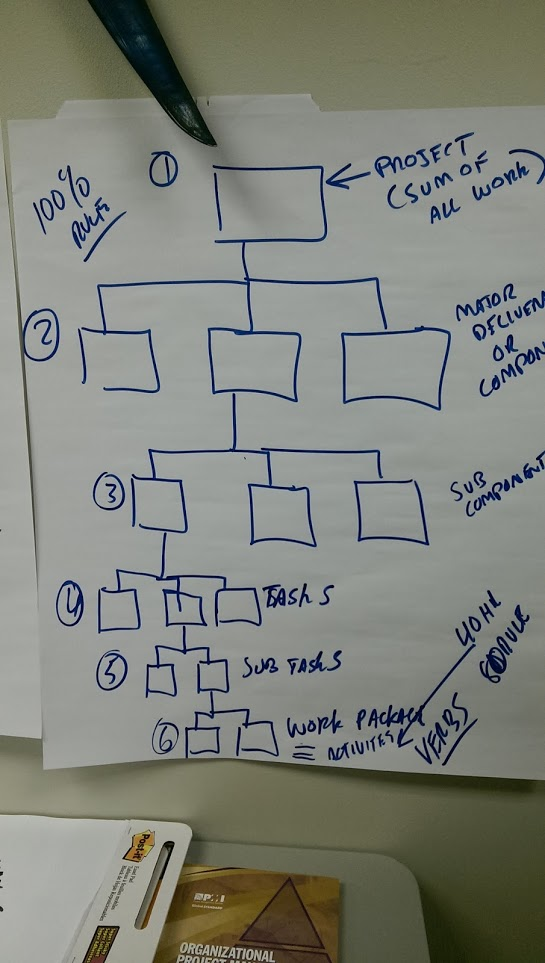 100%
RULE
①
PROJECT
(SUM OF
ALL WORK)
②
MAJOR
DELIVER
OR
COMPON
③
SUB
COMPONENT
④
TASKS
⑤
SUB TASKS
⑥
WORK PACKAGE
ACTIVITES
VERBS
40 HR
RULE
Post-it
PMI
ORGANIZATIONAL